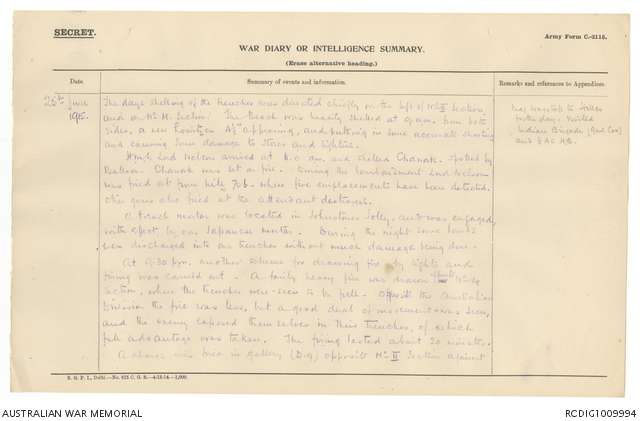 SECRET.
Army Form C.-2118.
WAR DIARY OR INTELLIGENCE SUMMARY.
(Erase alternative heading.)
Date
Summary of events and information.
Remarks and references to Appendices
25th June 1915.
The days shelling of the trenches was directed chiefly on the left of No. II Section,
and on No. III Section. The beach was heavily shelled at 9 am. from both
sides, a new Howitzer appearing, and putting in some accurate shooting
and causing some damage to stores and lighters.
H.M.S. Lord Nelson arrived at and shelled Chanak. spotted by
Balloon. Chanak was set on fire. During the bombardment Lord Nelson
was fired at from hill 706. where five emplacements have been detected.
Our guns also fired at the attendant destroyers.
A trench mortar was located in Johnstones Jolly, and was engaged,
with effect by our Japanese mortar. During the night some bombs
were discharged into our trenches without much damage being done.
At 9.30 p.m. another scheme for drawing fire by lights and
firing was carried out. A fairly heavy fire was drawn
section, where the trenches were seen to be full. Opposite the Australian
Division the fire was less, but a good deal of movement was seen,
and the enemy exposed themselves in their trenches, of which
full advantage was taken. The firing lasted about 20 minutes.
A was in gallery (D.9) opposite No. II Section against
birthday. Visited
Indian Brigade
and
AUSTRALIAN WAR MEMORIAL
RCDIG1009994